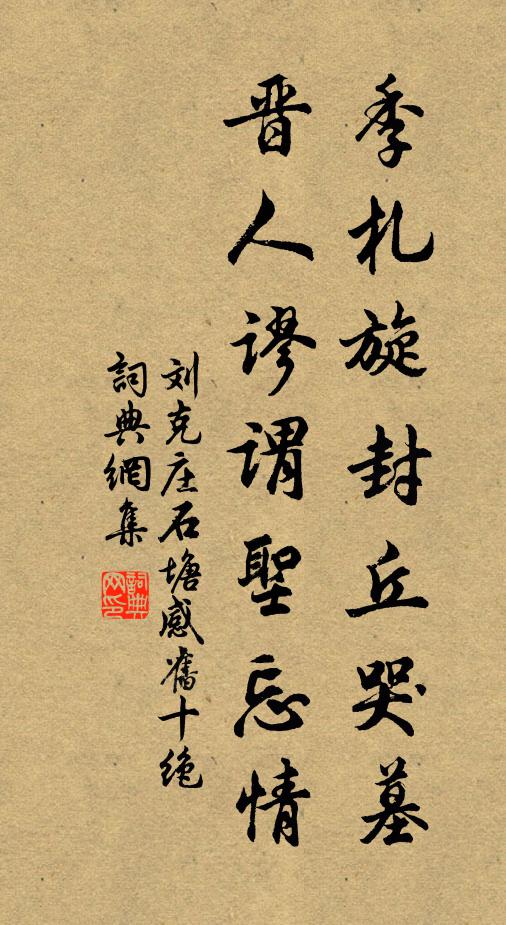 季札旋封丘哭墓
晋人謬谓聖忘情
刘克庄石塘感舊十绝
詞典網集
詞典
网印